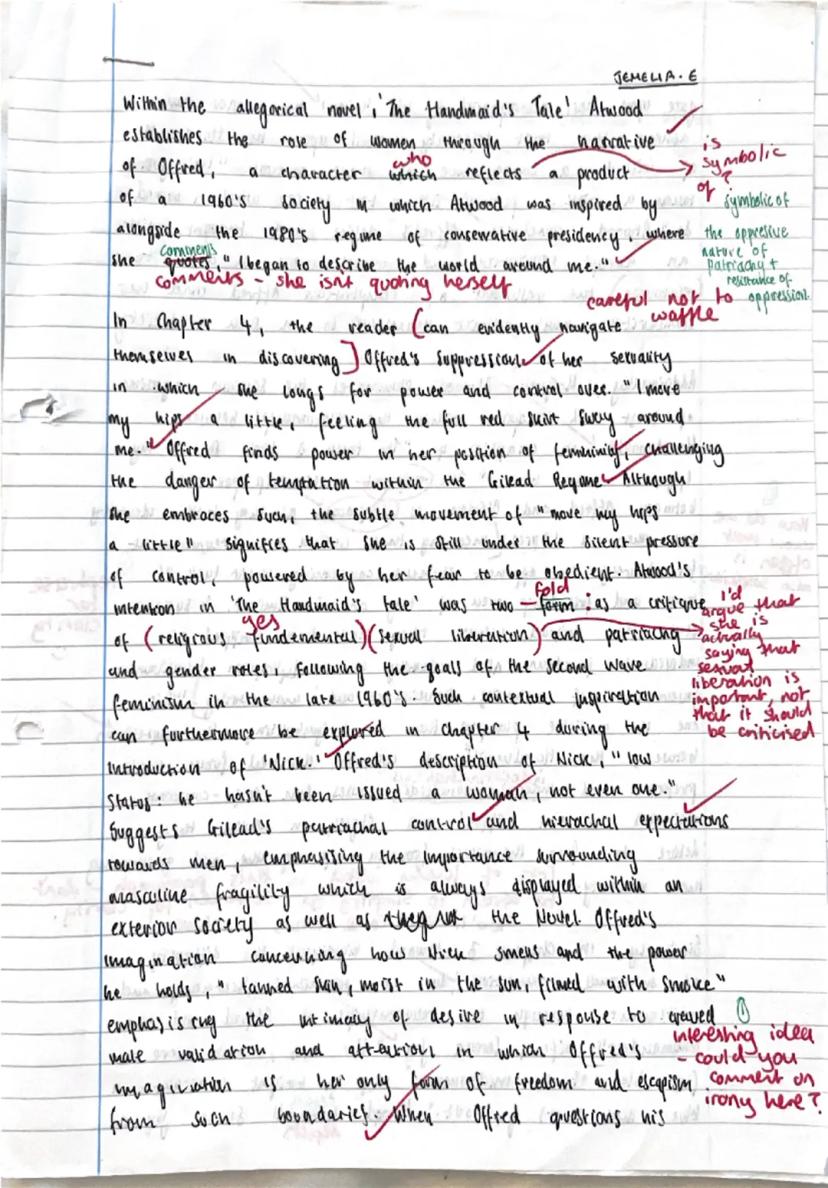 JEMELIA. E
Within the allegorical novel, 'The Handmaid's Tale' Atwood
establishes the role of women through the narrative
of Offred, a character which reflects a product
who
is symbolic of?
of a 1960's society in which Atwood was inspired by
alongside the 1980's regime of conservative presidency, where
symbolic of
the oppresive
nature of
patriachy +
resistance of
oppression.
she quotes, "I began to describe the world around me."
comments
comments - she isn't quoting herself
careful not to waffle
In Chapter 4, the reader (can evidently navigate
themselves in discovering] Offred's suppression of her sexuality
in which she longs for power and control over. "I move
my hips a little, feeling the full red skirt sway around
me." Offred finds power in her position of femininity, challenging
the danger of temptation within the Gilead Regime. Although
she embraces such, the subtle movement of "move my hips
a little" signifies that she is still under the silent pressure
of control, powered by her fear to be obedient. Atwood's
intention in 'The Handmaid's tale' was two - form : as a critique
fold
of (religious fundemental) (sexual liberation) and patriachy
yes
I'd
argue that
she is
actually
saying that
sexual
liberation is
important, not
that it should
be criticised
and gender roles, following the goals of the second wave
feminism in the late 1960's. Such contextual inspiration
can furthermore be explored in chapter 4 during the
introduction of 'Nick.' Offred's description of Nick, "low
status: he hasn't been issued a woman, not even one."
Suggests Gilead's patriachal control and hierachal expectations
towards men, emphasising the importance surrounding
masculine fragility which is always displayed within an
exterior society as well as the Novel. Offred's
imagination concerning how Nick smells and the power
he holds, "tanned skin, moist in the sun, filmed with smoke"
emphasising the intimacy of desire in response to
male validation and attention in which Offred's
imagination is her only form of freedom and escapism
from such boundaries. When Offred questions his
interesting idea
- could you
comment on
irony here?